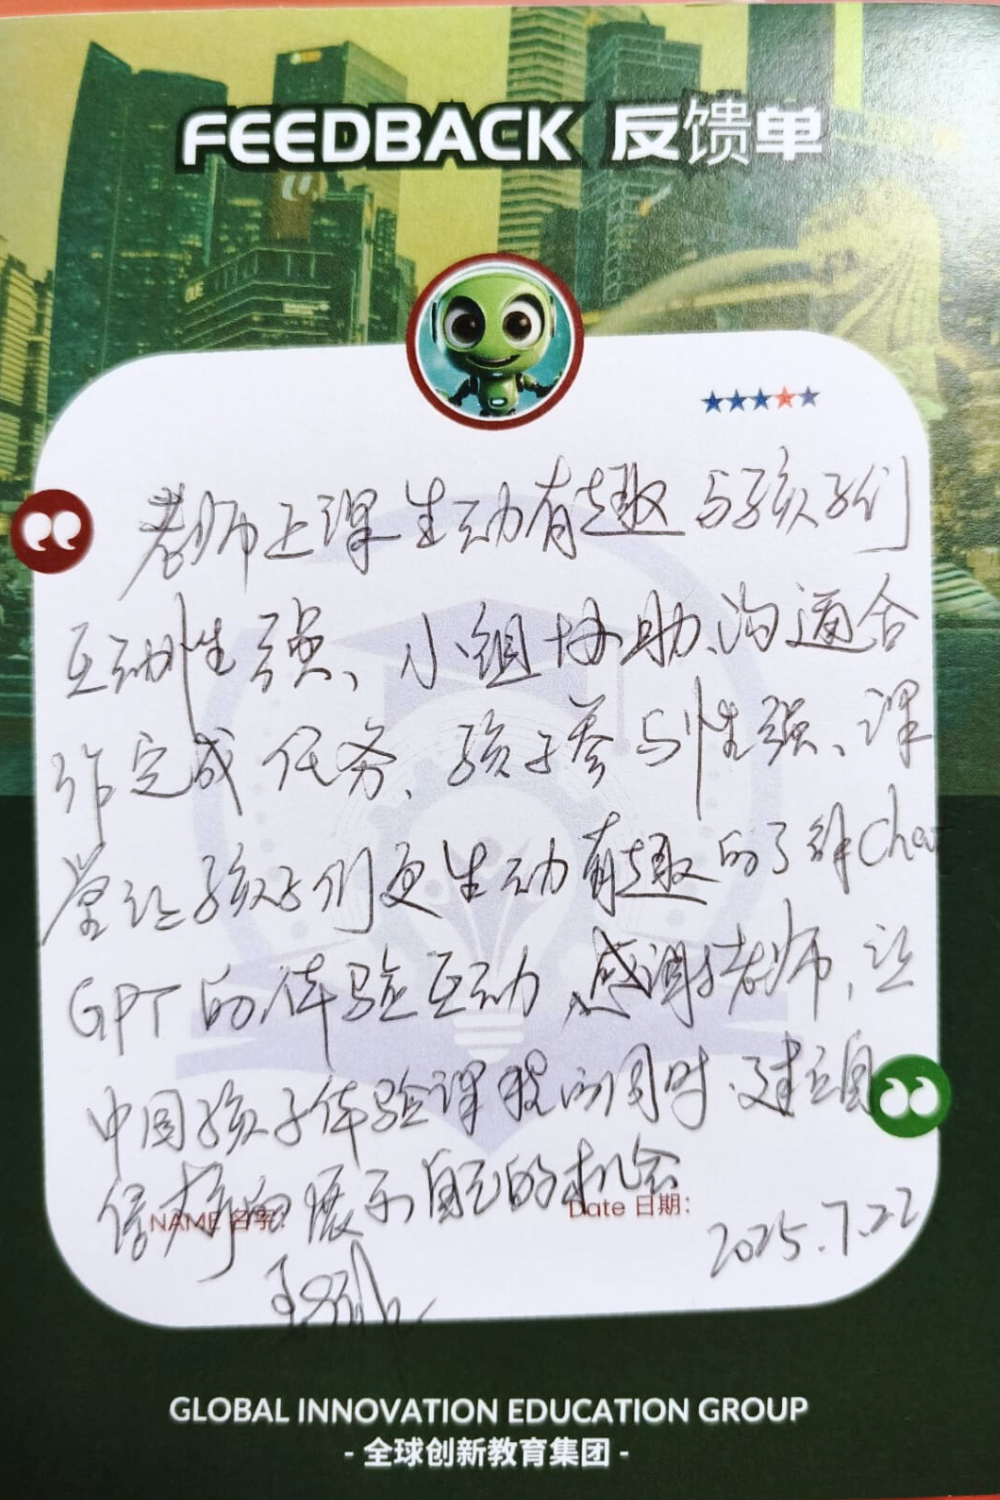 FEEDBACK 反馈单
老师上课生动有趣与孩子们
互动性强、小组协助、沟通合
作完成任务、孩子参与性强、课
堂让孩子们更生动有趣的了解Chat
GPT的体验互动、感谢老师,让
中国孩子体验课程的同时、建立自
信 展示自己的机会
NAME 名字:
Date 日期:
2025.7.22
GLOBAL INNOVATION EDUCATION GROUP
- 全球创新教育集团 -